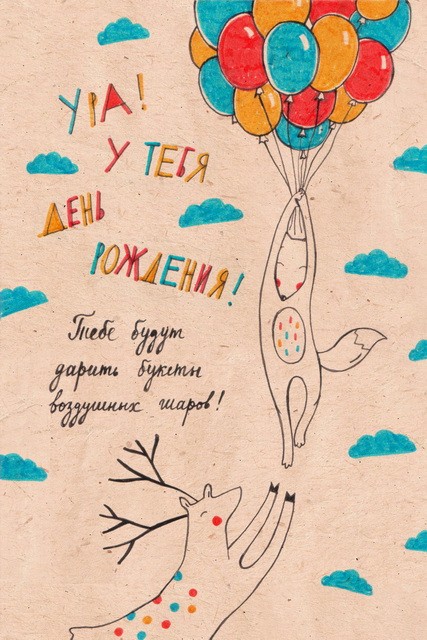 УРА!
У ТЕБЯ
ДЕНЬ
РОЖДЕНИЯ!
Тебе будут
дарить букеты
воздушных шаров!